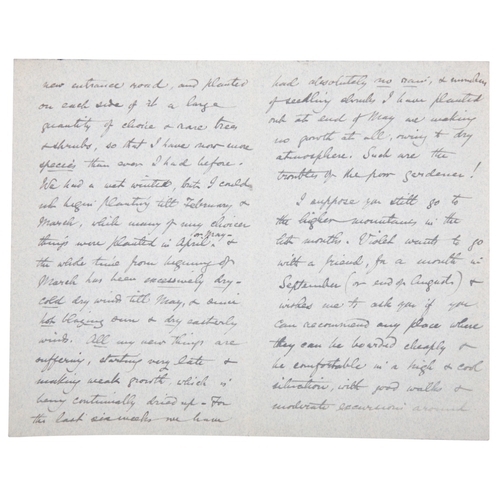 new entrance road, and planted
on each side of it a large
quantity of choice & rare trees
& shrubs, so tht I have now more
species than ever I had before.
We had a wet winter, but I could
not begin planting till February &
March, while many of my choicer
things were planted in April & 
or May –
the whole time from beginning of
March has been excessively dry –
cold dry winds till May, & since
hot blazing sun & dry easterly
winds. All my new things are
suffering, starting very late &
making weak growth, which is
being continually dried up – For
the last six weeks we have
had absolutely no rain, & numbers
of seedling shrubs I have planted
out at end of May are making
no growth at all, owing to dry
atmosphere. Such are the
troubles of the poor gardener!
I suppose you still go to
the higher mountains in the
late months. Violet wants to go
with a friend, for a month in
September (or end of August) &
wishes me to ask you if you
can recommend any place where
they can be boarded cheaply &
be comfortable in a high & cool
situation, with good walks &
moderate excursions around